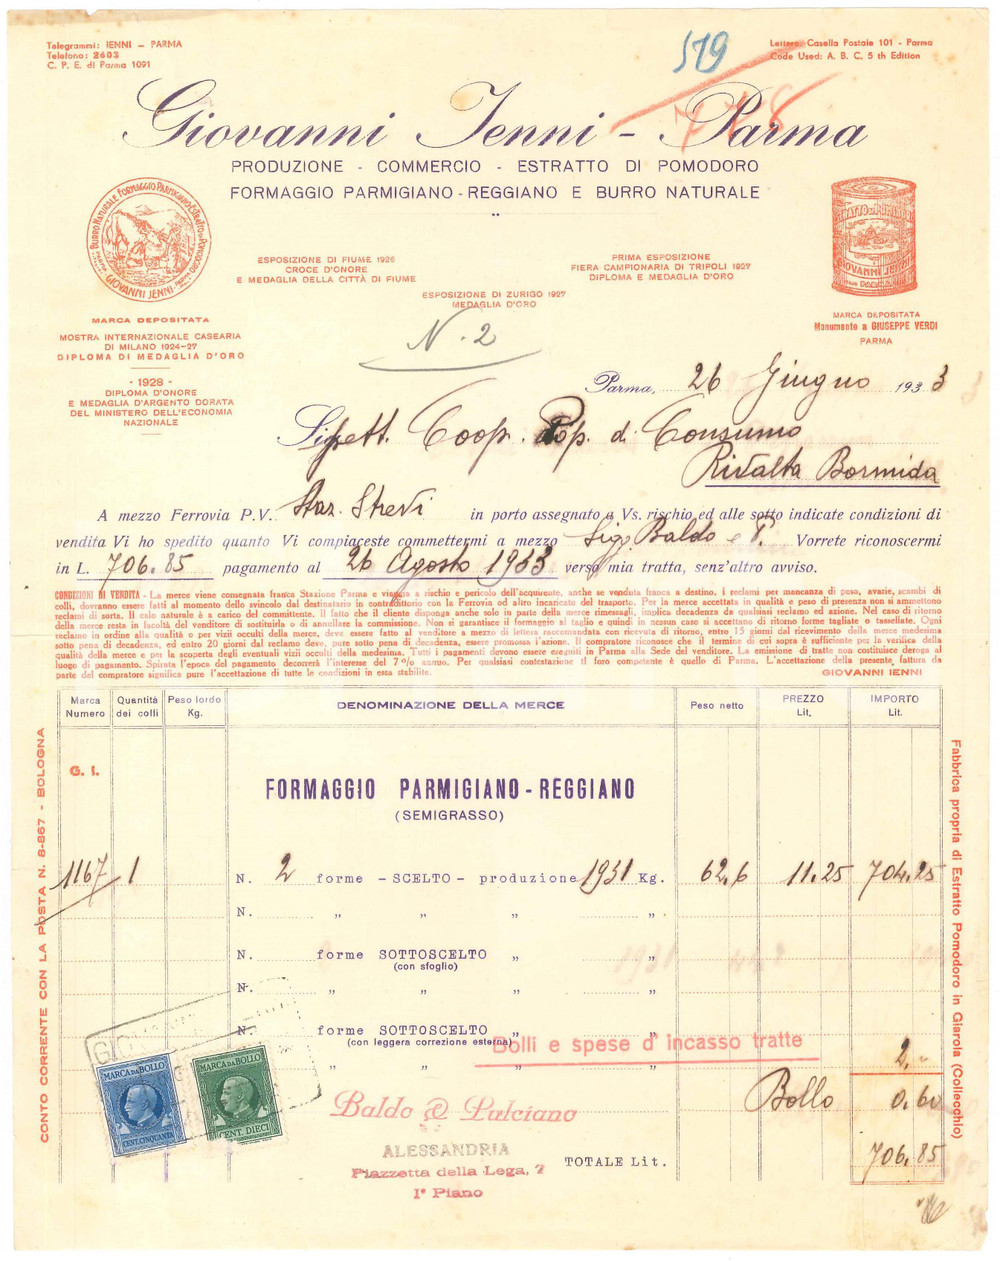 Telegrammi: IENNI - PARMA
Telefono: 2603
C. P. E. di Parma 1091
519
778
Lettere, Casella Postale 101 - Parma
Code Used: A. B. C. 5 th Edition
Giovanni Ienni - Parma
PRODUZIONE - COMMERCIO - ESTRATTO DI POMODORO
FORMAGGIO PARMIGIANO - REGGIANO E BURRO NATURALE
BURRO NATURALE FORMAGGIO PARMIGIANO ESTRATTO DI POMODORO
GIOVANNI IENNI - PARMA
MARCA DEPOSITATA
MOSTRA INTERNAZIONALE CASEARIA
DI MILANO 1924-27
DIPLOMA DI MEDAGLIA D'ORO
- 1928 -
DIPLOMA D'ONORE
E MEDAGLIA D'ARGENTO DORATA
DEL MINISTERO DELL'ECONOMIA
NAZIONALE
ESPOSIZIONE DI FIUME 1926
CROCE D'ONORE
E MEDAGLIA DELLA CITTÀ DI FIUME
ESPOSIZIONE DI ZURIGO 1927
MEDAGLIA D'ORO
PRIMA ESPOSIZIONE
FIERA CAMPIONARIA DI TRIPOLI 1927
DIPLOMA E MEDAGLIA D'ORO
GIOVANNI IENNI
MARCA DEPOSITATA
Monumento a GIUSEPPE VERDI
PARMA
N. 2
Parma, 26 Giugno 1933
Sig. Spett. Coop. Pop. di Consumo
Rivalta Bormida
A mezzo Ferrovia P.V. Staz. Strevi in porto assegnato a Vs. rischio ed alle sotto indicate condizioni di
vendita Vi ho spedito quanto Vi compiaceste commettermi a mezzo Sigg. Baldo e P. Vorrete riconoscermi
in L. 706.85 pagamento al 26 Agosto 1933 verso mia tratta, senz'altro avviso.
CONDIZIONI DI VENDITA - La merce viene consegnata franca Stazione Parma e viaggia a rischio e pericolo dell'acquirente, anche se venduta franca a destino. I reclami per mancanza di peso, avarie, scambi di
colli, dovranno essere fatti al momento dello svincolo dal destinatario in contradditorio con la Ferrovia od altro incaricato del trasporto. Per la merce accettata in qualità e peso di presenza non si ammettono
reclami di sorta. Il calo naturale è a carico del committente. Il fatto che il cliente disponga anche solo in parte della merce rimessagli, implica decadenza da qualsiasi reclamo ed azione. Nel caso di ritorno
della merce resta in facoltà del venditore di sostituirla o di annullare la commissione. Non si garantisce il formaggio al taglio e quindi in nessun caso si accettano di ritorno forme tagliate o tassellate. Ogni
reclamo in ordine alla qualità o per vizii occulti della merce, deve essere fatto al venditore a mezzo di lettera raccomandata con ricevuta di ritorno, entro 15 giorni dal ricevimento della merce medesima
sotto pena di decadenza, ed entro 20 giorni dal reclamo deve, pure sotto pena di decadenza, essere promossa l'azione. Il compratore riconosce che il termine di cui sopra è sufficiente per la verifica della
qualità della merce e per la scoperta degli eventuali vizii occulti della medesima. Tutti i pagamenti devono essere eseguiti in Parma alla Sede del venditore. La emissione di tratte non costituisce deroga al
luogo di pagamento. Spirata l'epoca del pagamento decorrerà l'interesse del 7% annuo. Per qualsiasi contestazione il foro competente è quello di Parma. L'accettazione della presente fattura da
parte del compratore significa pure l'accettazione di tutte le condizioni in essa stabilite.
GIOVANNI IENNI
Marca Numero
Quantità dei colli
Peso lordo Kg.
DENOMINAZIONE DELLA MERCE
Peso netto
PREZZO Lit.
IMPORTO Lit.
G. I.
FORMAGGIO PARMIGIANO - REGGIANO
(SEMIGRASSO)
1167 1 N. 2 forme - SCELTO - produzione 1931 Kg. 62,6 11.25 704.25
N. „ „ „ „
forme SOTTOSCELTO „
(con sfoglio)
N. „ „ „ „
N. forme SOTTOSCELTO „
(con leggera correzione esterna)
„ „ „ „
Bolli e spese d'incasso tratte 2,-
Bollo 0.60
Baldo & Pulciano
ALESSANDRIA
Piazzetta della Lega, 7
1° Piano
TOTALE Lit. 706.85
MARCA DA BOLLO
CENT. CINQUANTA
MARCA DA BOLLO
CENT. DIECI
CONTO CORRENTE CON LA POSTA N. 8-867 - BOLOGNA
Fabbrica propria di Estratto Pomodoro in Giarola (Collecchio)